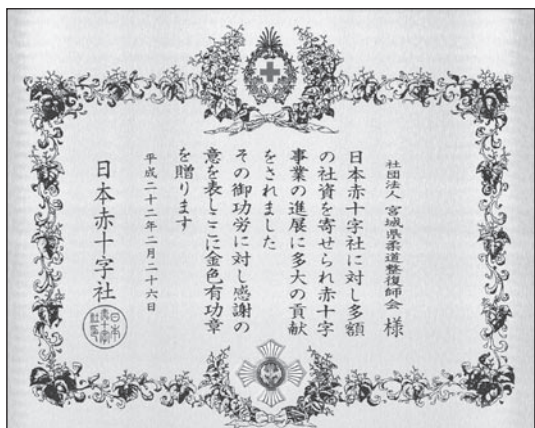 社団法人 宮城県柔道整復師会 様
日本赤十字社に対し多額
の社資を寄せられ赤十字
事業の進展に多大の貢献
をされました
その御功労に対し感謝の
意を表しここに金色有功章
を贈ります
平成二十二年二月二十六日
日本赤十字社